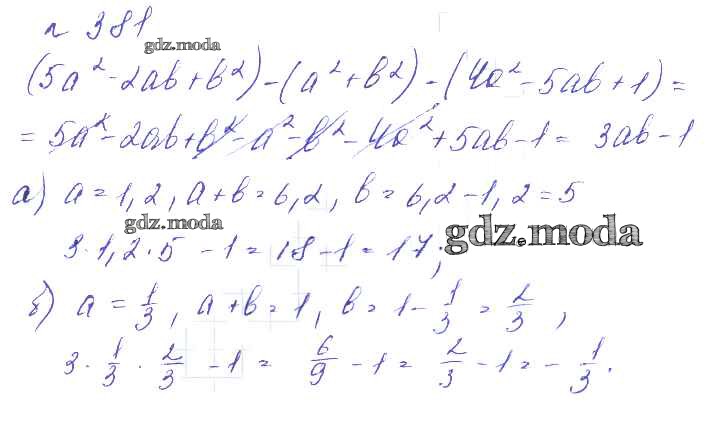 № 381
gdz.moda
(5a² - 2ab + b²) - (a² + b²) - (4a² - 5ab + 1) =
= 5a² - 2ab + b² - a² - b² - 4a² + 5ab - 1 = 3ab - 1
а) a = 1,2, a + b = 6,2, b = 6,2 - 1,2 = 5
gdz.moda
3 · 1,2 · 5 - 1 = 18 - 1 = 17;
gdz.moda
б) a = 1/3, a + b = 1, b = 1 - 1/3 = 2/3,
3 · 1/3 · 2/3 - 1 = 6/9 - 1 = 2/3 - 1 = - 1/3.